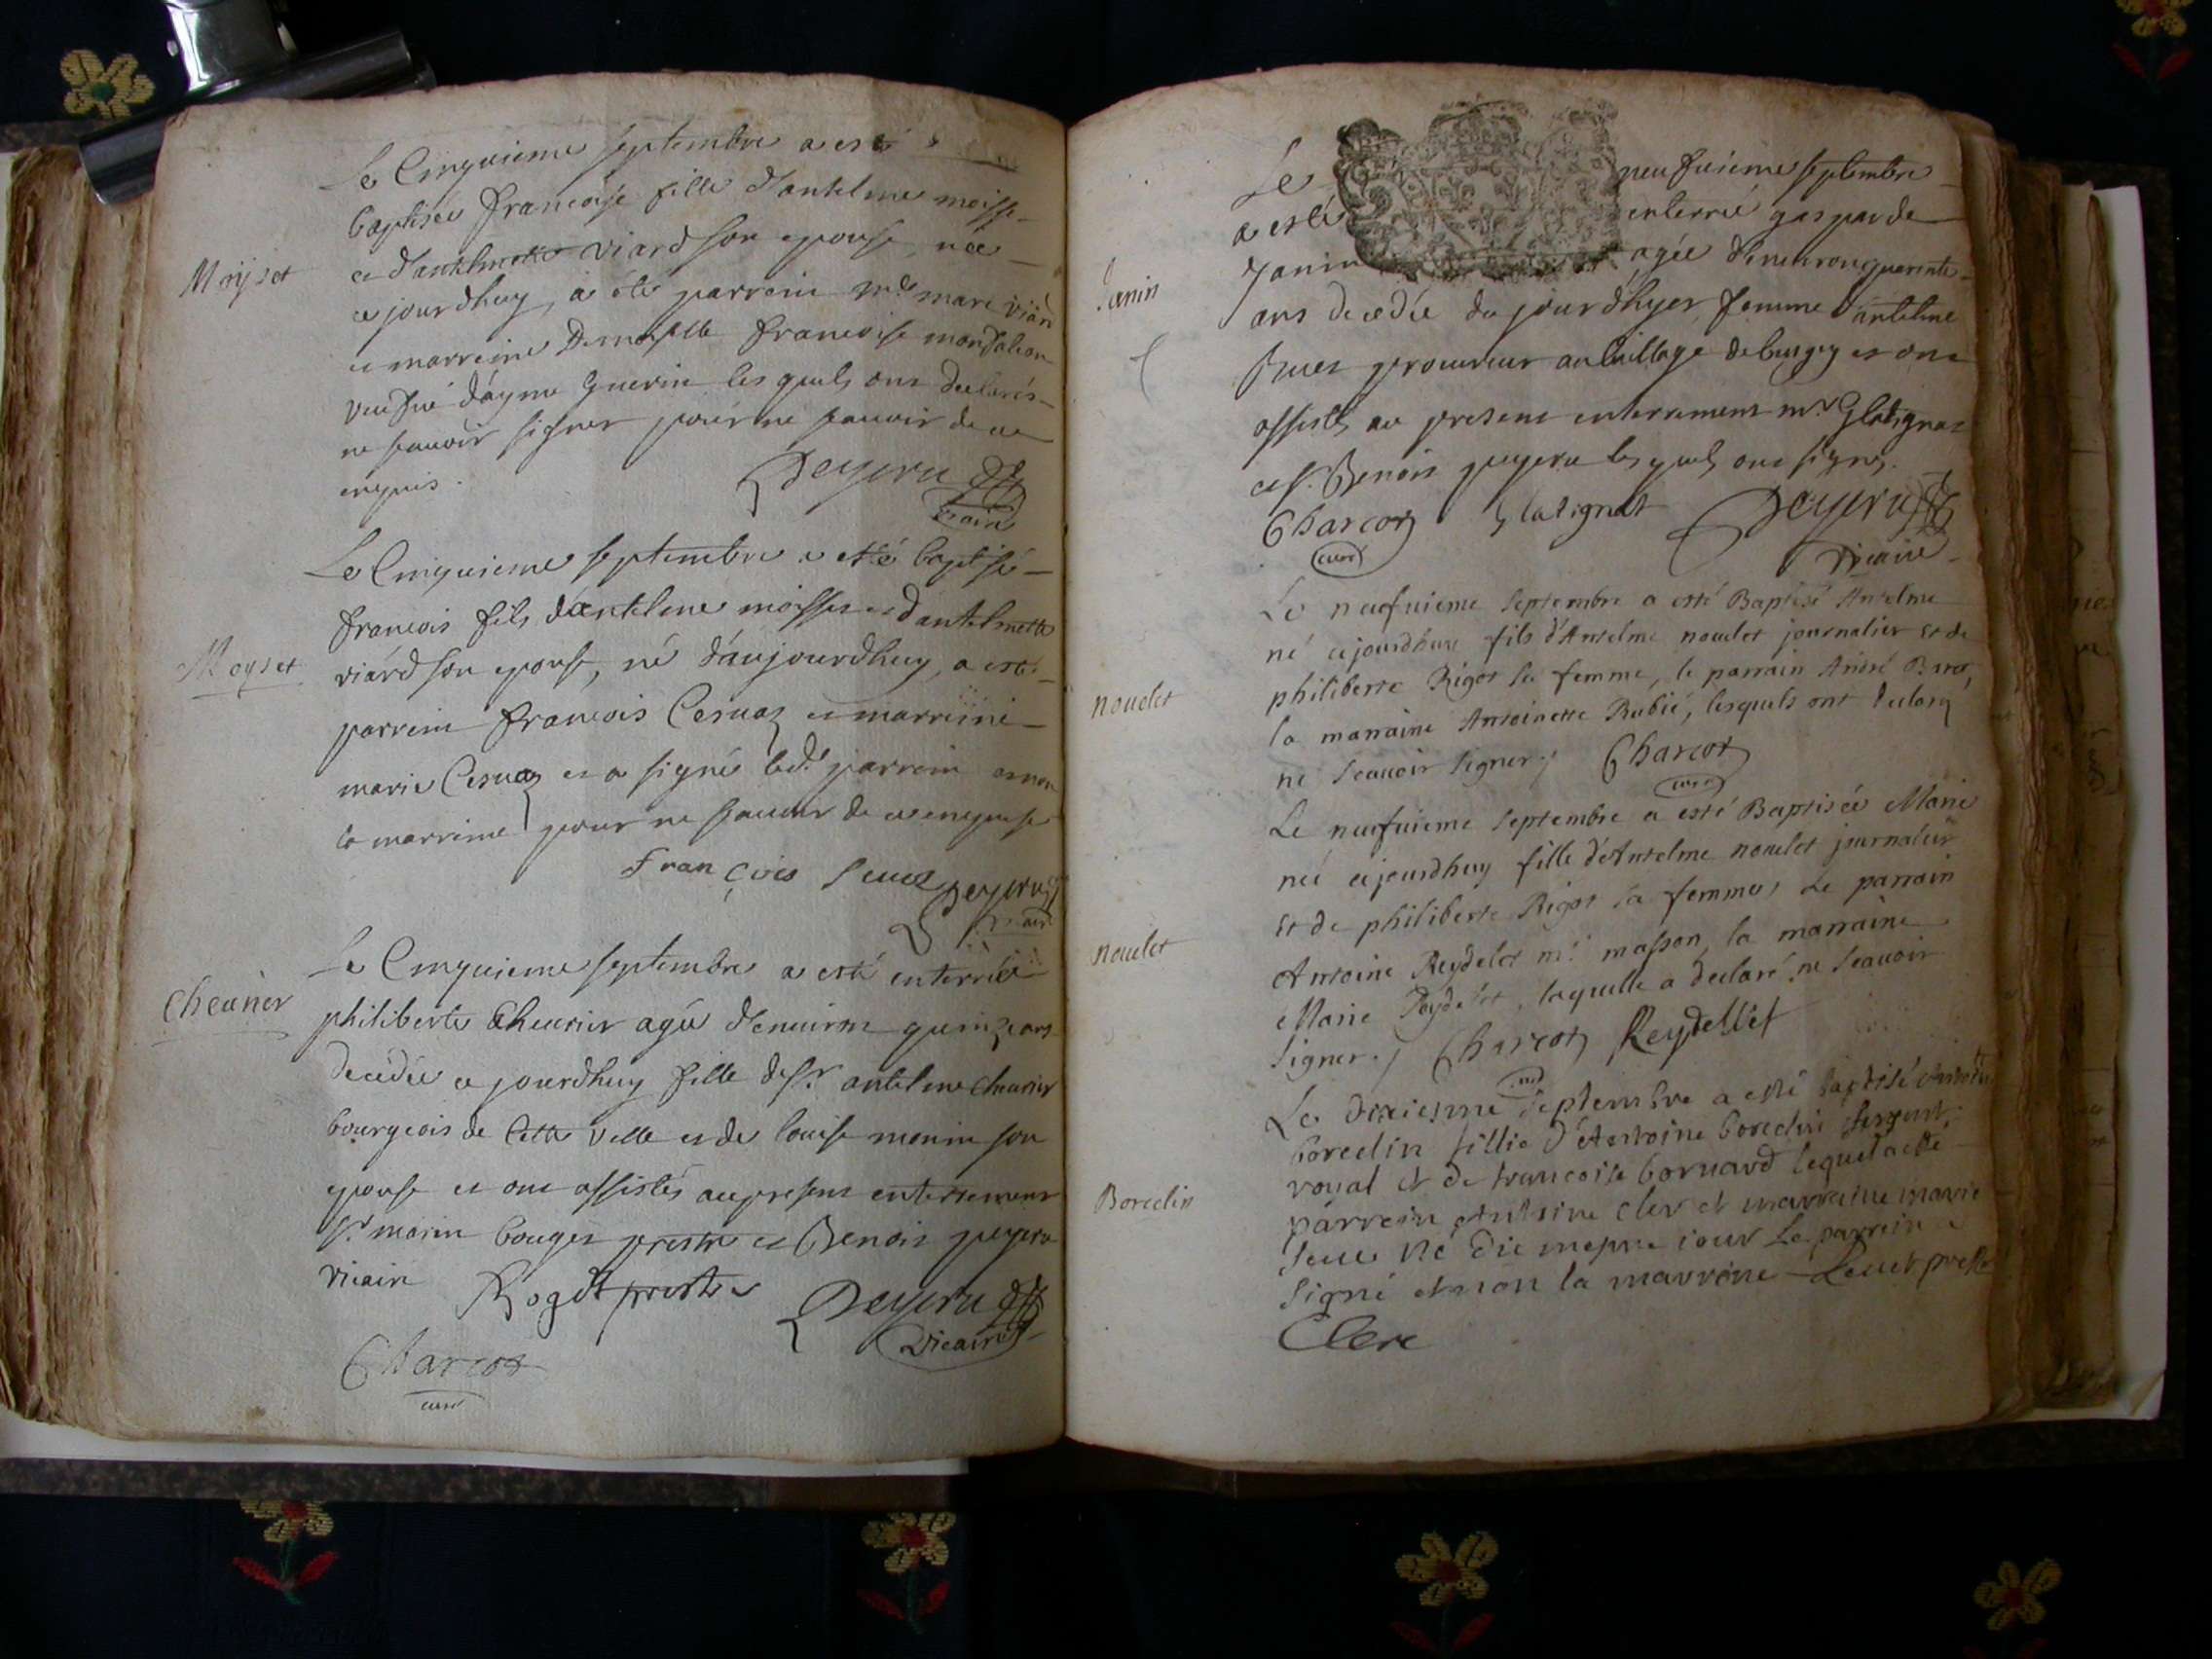 Le Cinquieme septembre a esté
baptisée francoise fille d'antelme moisse
et d'antelmette viard son epouse née
Moyset
ce jourdhuy, a été parrein mre marc viard
et marreine Demoiselle francoise mondalion
veufve d'ayme Guerin lesquels ont declarés
ne scavoir signer pour ne scavoir de ce
enquis.
Peyseru
vicaire
Le Cinquieme septembre a esté baptisé
francois fils d'antelme moisset et d'antelmette
Moyset
viard son epouse, né d'aujourdhuy, a esté
parrein francois Cesuaz et marreine
marie Cesuaz et a signé led. parrein et non
la marreine pour ne scavoir de ce enquise
François Peyseru
vicaire
Le Cinquieme septembre a esté enterrée
Cheurier
philiberte Cheurier agée d'environ quinze ans
decedée ce jourdhuy fille de sr antelme cheurier
bourgeois de Cette ville et de louise monin son
epouse et ont assistés au present enterrement
sr morin bouget prestre et Benois peyseru
vicaire Roget prestre Peyseru
Vicaire
Charcot
curé
Le neufvieme septembre
a esté enterrée gasparde
Janin agée d'environ quarente
Janin
ans decedée du jourdhyer femme d'antelme
Brues procureur au baillage de bugey et ont
assistés au present enterrement mr Glatignat
et sr. Benois peyseru lesquels ont signés.
Charcot Glatignat Peyseru
curé Vicaire
Le neufvieme septembre a esté Baptisé Antelme
né cejourdhuy fils d'Antelme nouelet journalier et de
nouelet
philiberte Rigot sa femme, le parrain André
la marraine Antoinette Rubié, lesquels ont declaré
ne scauoir signer./ Charcot
curé
Le neufvieme septembre a esté Baptisée Marie
née cejourdhuy fille d'Antelme nouelet journalier
et de philiberte Rigot sa femme, Le parrain
nouelet
Antoine Reydelet mr masson, la marraine
Marie Reydelet, laquelle a declaré ne scauoir
signer./ Charcot Reydellet
curé
Le dixiesme septembre a esté baptisé
borcelin fillie d'Antoine borcelin sergent
royal et de francoise bornard lequel a esté
Borcelin
parrein Antoine cler et marraine marie
seue né die mesme iour Le parrein a
signé et non la marreine prestre
Clerc